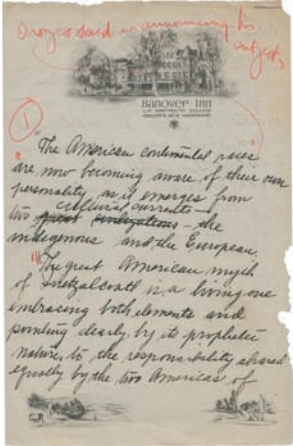 Orozco said in announcing his
subject,
Hanover Inn
AT DARTMOUTH COLLEGE
HANOVER, NEW HAMPSHIRE
1
"The American continental races
are now becoming aware of their own
personality as it emerges from
cultural currents—
two great civilizations — the
indigenous and the European.
"The great American myth
of Quetzalcoatl is a living one
embracing both elements and
pointing clearly, by its prophetic
nature, to the responsibility shared
equally by the two Americas of